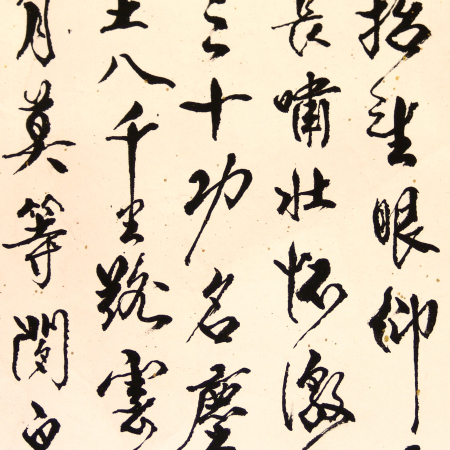 抬望眼仰
長嘯壯懷激
三十功名塵
土八千里路雲
月莫等閒白